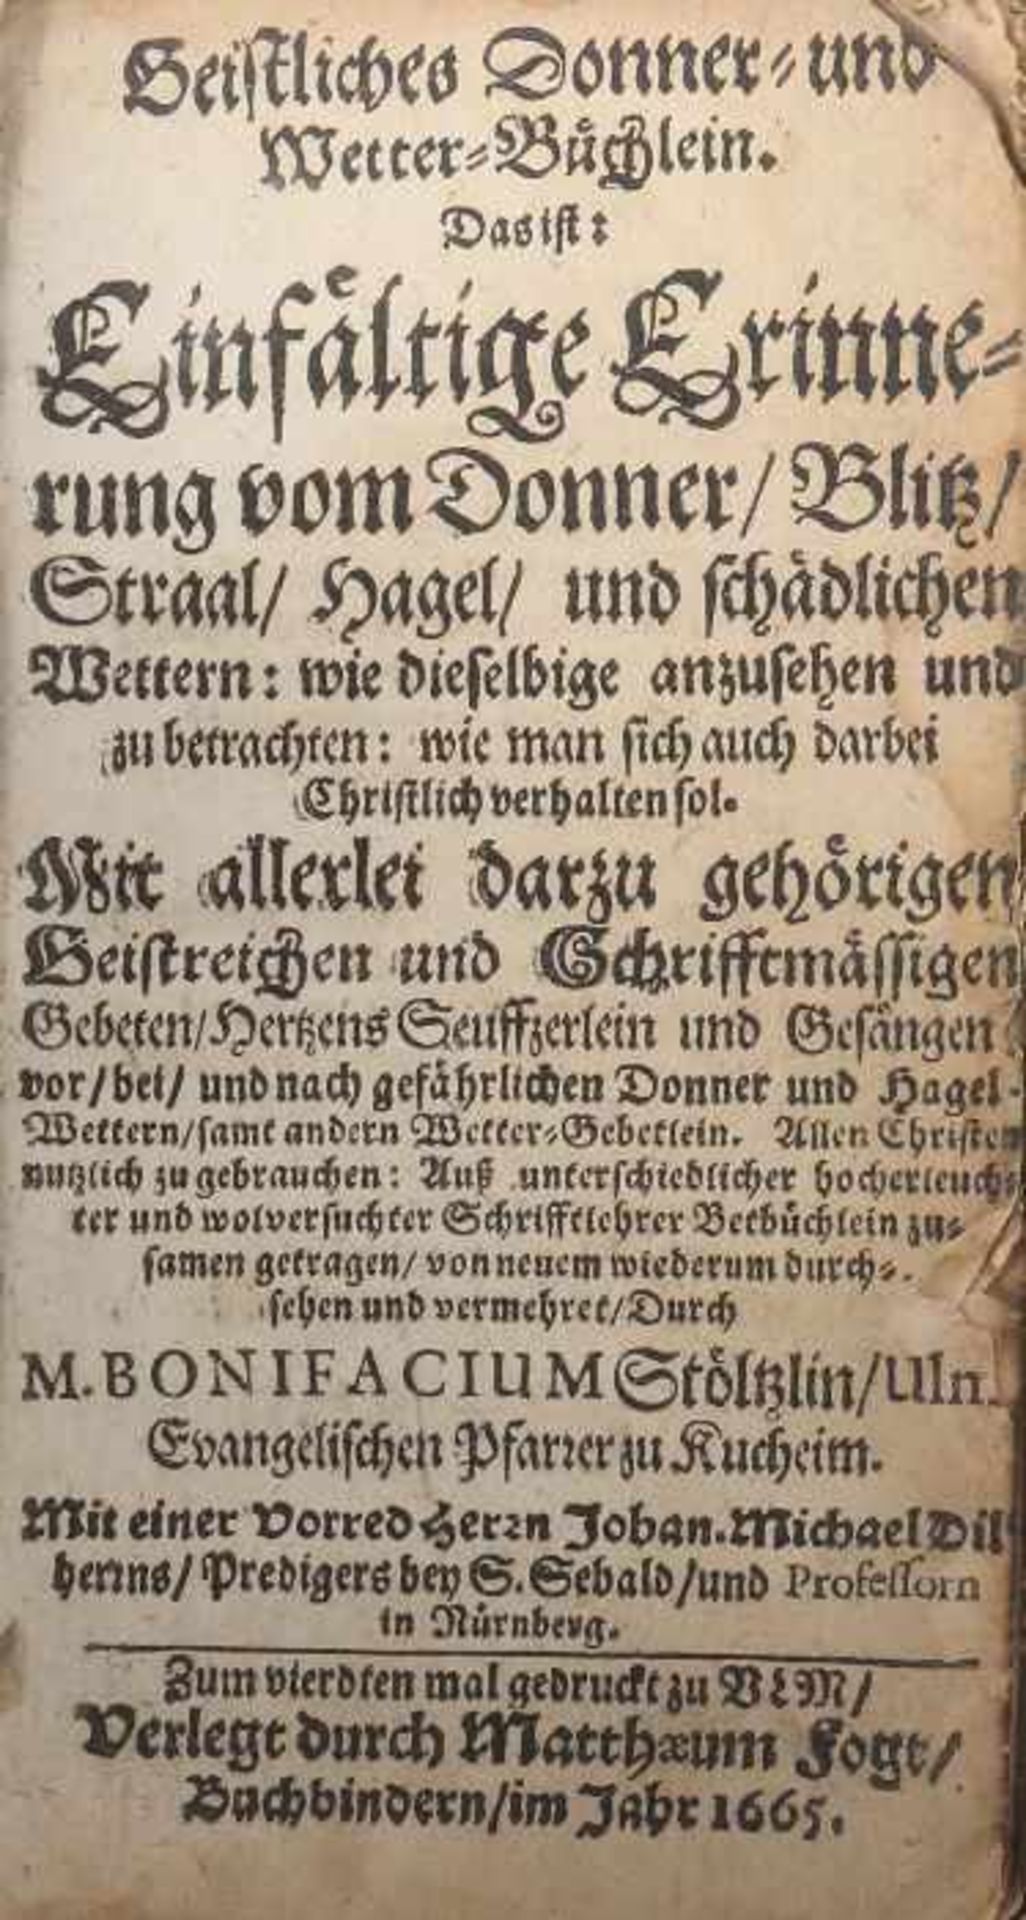 Geistliches Donner- und
Wetter-Büchlein.
Das ist:
Einfältige Erinne-
rung vom Donner/ Blitz/
Straal/ Hagel/ und schädlichen
Wettern: wie dieselbige anzusehen und
zu betrachten: wie man sich auch darbei
Christlich verhalten sol.
Mit allerlei darzu gehörigen
Geistreichen und Schrifftmässigen
Gebeten/ Hertzens Seuffzerlein und Gesängen
vor/ bei/ und nach gefährlichen Donner und Hagel-
Wettern/ samt andern Wetter-Gebetlein. Allen Christen
nutzlich zu gebrauchen: Auß unterschiedlicher hocherleuch-
ter und wolversuchter Schrifftlehrer Betbüchlein zu-
samen getragen/ von neuem wiederum durch-
sehen und vermehret/ Durch
M. BONIFACIUM Stöltzlin/ Ulm.
Evangelischen Pfarrer zu Kucheim.
Mit einer Vorred Herrn Johan. Michael Dil
herrns/ Predigers bey S. Sebald/ und Professorn
in Nürnberg.
Zum vierdten mal gedruckt zu VLM/
Verlegt durch Matthæum Fogt/
Buchbindern/ im Jahr 1665.